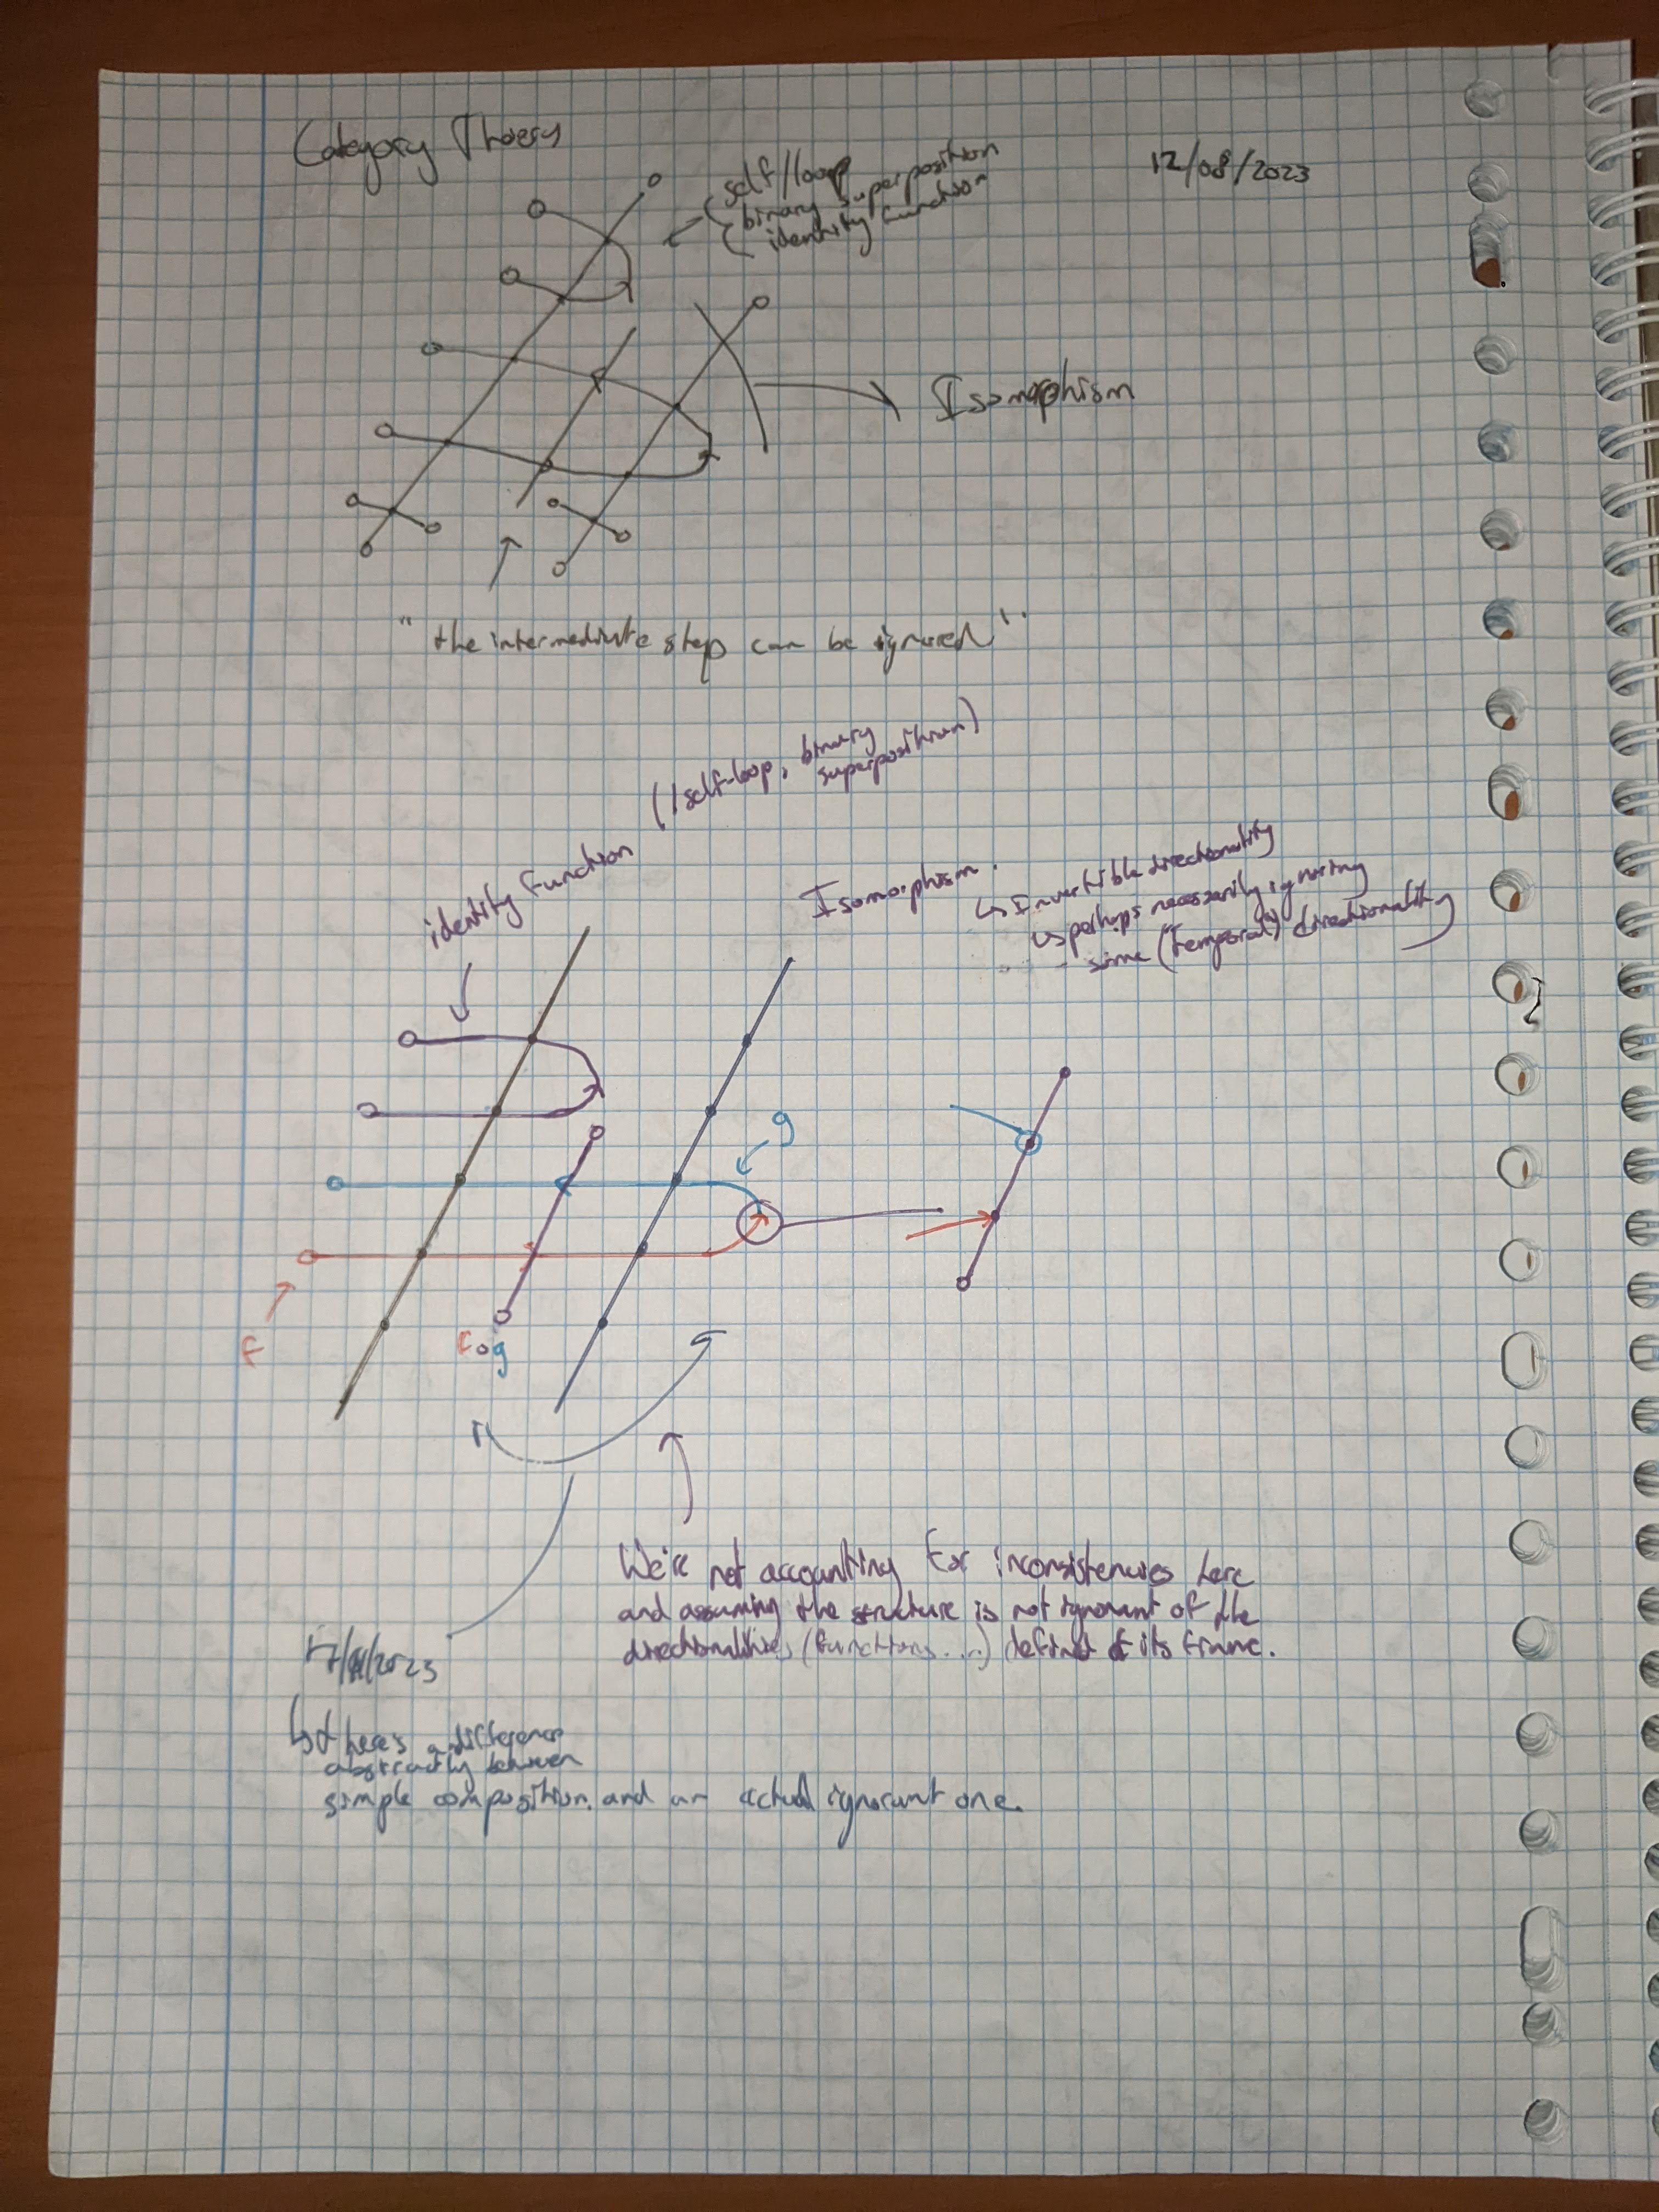 Category Theory
12/08/2023
(self/loop
binary superposition
( identity function
Isomorphism
"the intermediate step can be ignored".
identity function (/self-loop, binary
superposition)
Isomorphism.
↳ Invertible directionality
↳ perhaps necessarily ignoring
some (temporal) directionality
g
F
Fog
We're not accounting for inconsistencies here
and assuming the structure is not ignorant of the
directionalities (functions...) defined of its frame.
/2023
↳ there's a difference
abstractly between
simple composition and an actual ignorant one.